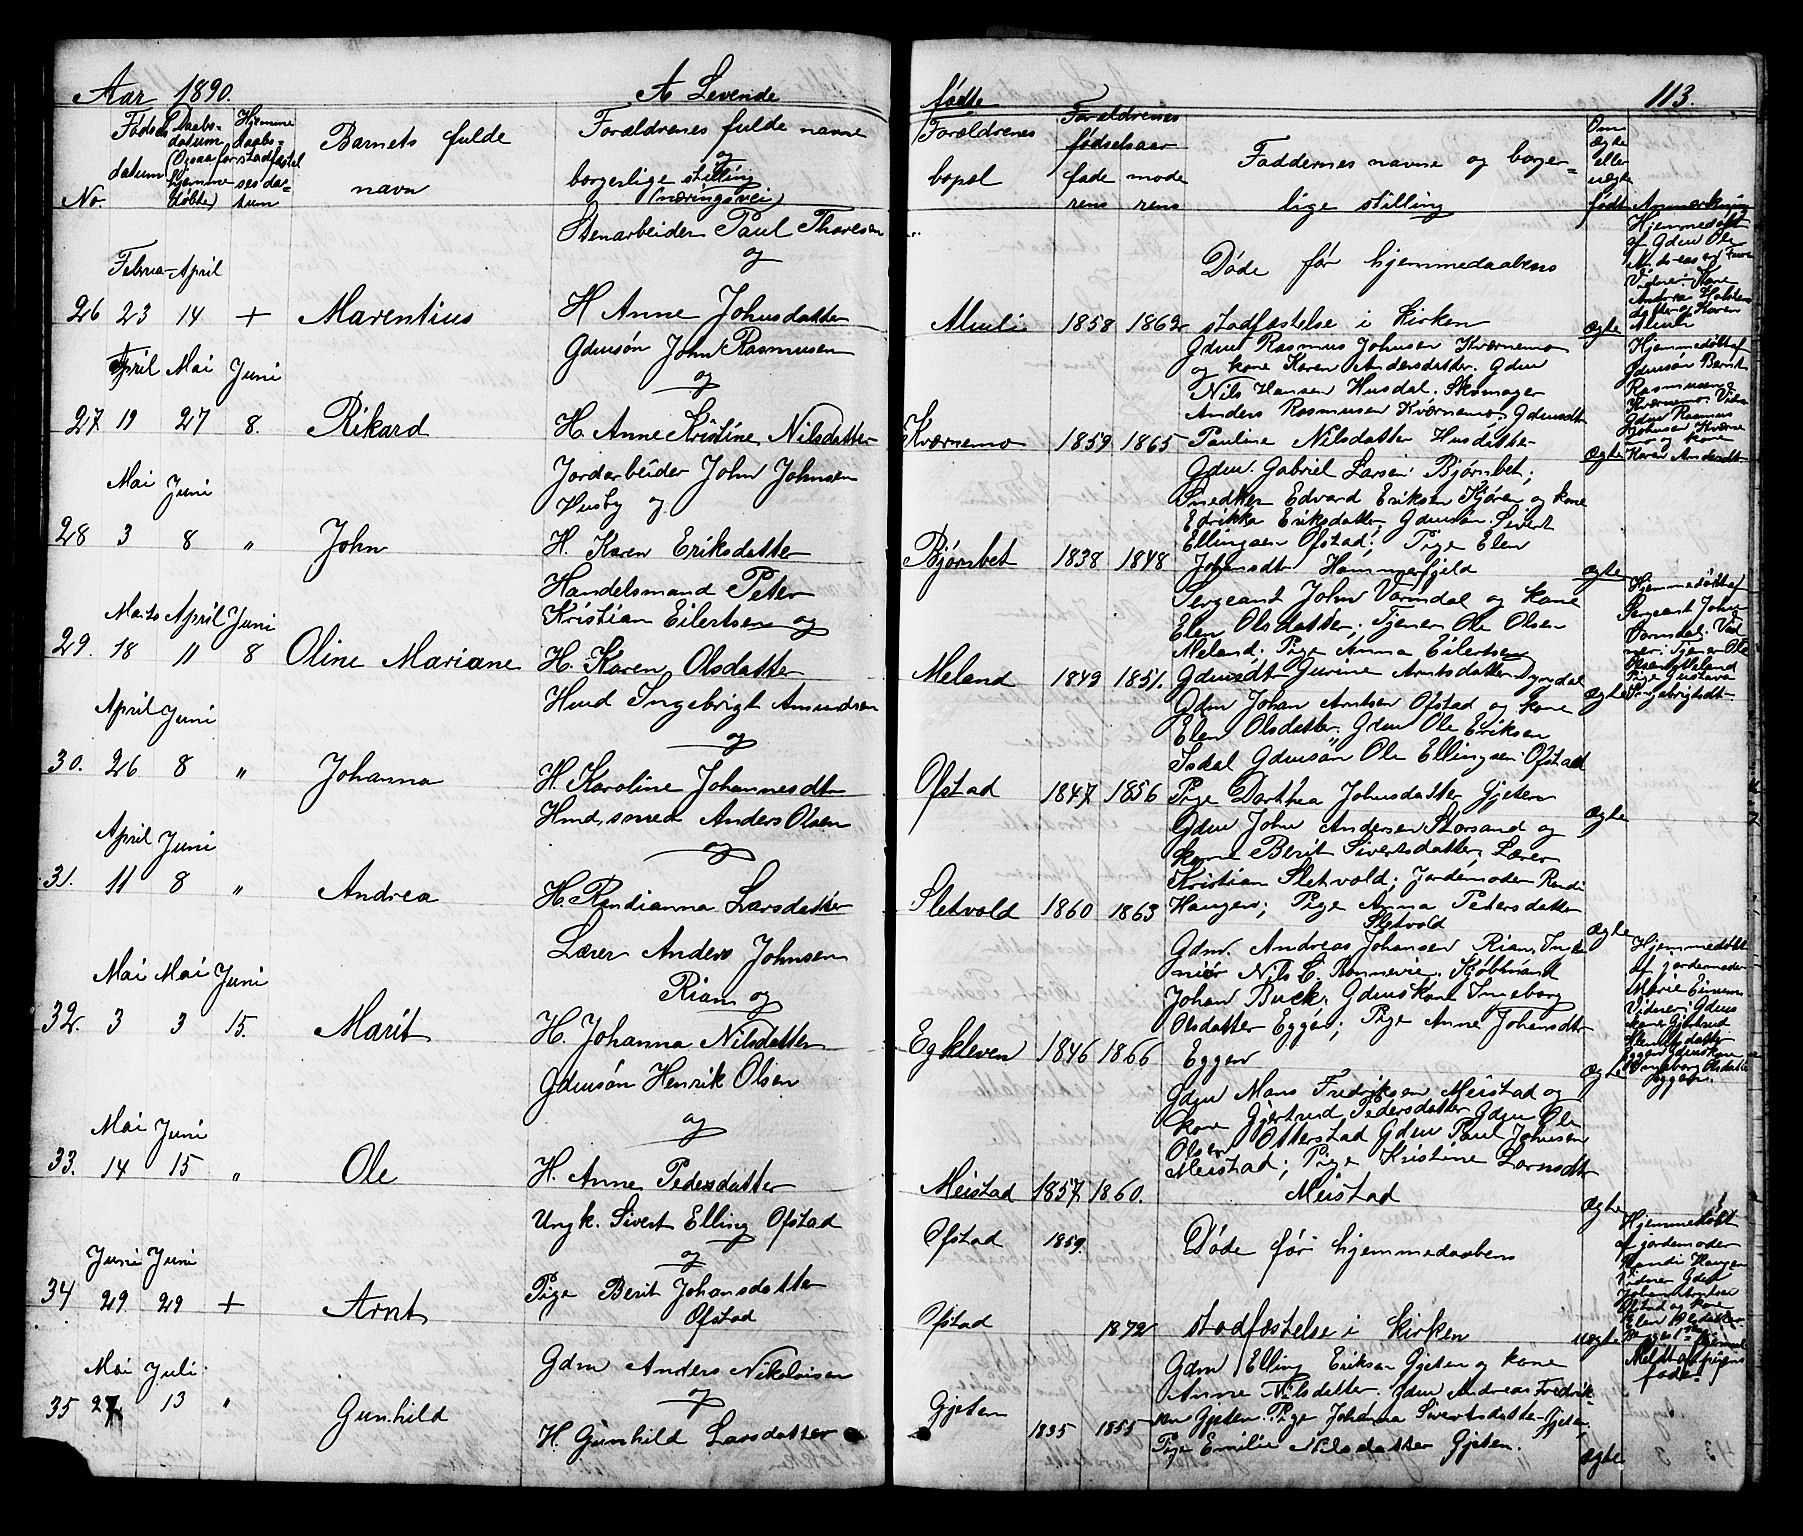 Aar 1890. A Levende
fødte 113.
No.
Fødsels datum
Daabs-datum (Ogsaa for hjemme døbte)
Hjemme daabs-stadfæstelses datum
Barnets fulde navn
Forældrenes fulde navne og borgerlige stilling (næringsvei)
Forældrenes bopæl
Forældrenes fødselsaar faderens moderens
Faddernes navne og borgerlige stilling
Om ægte eller uægte født
Anmerkning
Februar April
26 23 14 + Marentius
Stenarbeider Paul Thoresen
og
H. Anne Johnsdatter
Almli 1858 1862
Døde før hjemmedaabens
stadfæstelse i kirken
ægte
Hjemmedøbt
af Gdm Ole
Andreasen
Vidner: Kone
Andrea
datter og Karen
Almli
April Mai Juni
27 19 27 8. Rikard
Gdmsøn John Rasmusen
og
H. Anne Kristine Nilsdatter
Kværnemo 1859 1865
Gdm Rasmus Johnsen Kværnemo
og kone Karen Andersdatter. Gdm
Nils Hansen Husdal, Skomager
Anders Rasmusen Kværnemo, Gdmsdt
Pauline Nilsdatter
ægte
Hjemmedøbt af
Gdmsøn Bernt
Rasmusen
Kværnemo. Vidn
Gdm Rasmus
Johnsen Kværne
mo og kone
Karen Andersdt
Mai Juni
28 3 8 " John
Jordarbeider John Johnsen
Husby og
H. Karen Eriksdatter
Bjørnbet 1838 1848
Gdm. Gabriel Larsen Bjørnbet;
Snedker Edvard Eriksen Kjøren og kone
Edrikka Eriksdatter. Gdmsøn Sivert
Ellingsen Ofstad; Pige Elen
Johnsdt Hammerfjeld
ægte
Marts April Juni
29. 18 11 8 Oline Mariane
Handelsmand Peter
Kristian Eilertsen og
H. Karen Olsdatter
Meland 1843 1851.
Sergeant John Vormdal og kone
Elen Olsdatter; Tjener Ole Olsen
Meland; Pige Anna Eilertsen
Gdmsdt Gurine Arntsdatter Dyrdal
ægte
Hjemmedøbt af
Sergeant John
Vormdal. Vid
ner: Tjener Ole
Olsen Meland
Pige Gustava
Ingebrigtsdt.
April Juni
30. 26 8 " Johanna
Hmd Ingebrigt Amundsen
og
H. Karoline Johannesdt
Ofstad 1847 1856
Gdm Johan Arntsen Ofstad og kone
Elen Olsdatter. Gdm Ole Eriksen
Isdal Gdmsøn Ole Ellingsen Ofstad
Pige Dorthea Johnsdatter Gjeten
ægte
April Juni
31. 11 8 " Andrea
Hmd, smed Anders Olsen
og
H. Randianna Larsdatter
Sletvold 1860 1863
Gdm John Andersen Storsand og
kone Berit Sivertsdatter; Lærer
Kristian Sletvold; Jordemoder Randi
Haugen; Pige Anna Petersdatter
Sletvold
ægte
Mai Mai Juni
32. 3 3 15. Marit
Lærer Anders Johnsen
Rian og
H. Johanna Nilsdatter
Egkleven 1846 1866
Gdm. Andreas Johansen Rian, Inge
niør Nils C. Ronnevie. Kjøbmand
Johan Buck. Gdmskone Ingeborg
Olsdatter Eggen; Pige Anne Johansdt
Eggen
ægte
Hjemmedøbt
af jordemoder
Marie Einum
Vidner: Gdms
kone Gjertrud
Henriksdatter
Eggen Gdmskone
Ingeborg Olsdatter
Eggen.
Mai Juni
33. 14 15 " Ole
Gdmsøn Henrik Olsen
og
H. Anne Pedersdatter
Meistad 1857 1860.
Gdm Mons Fredriksen Meistad og
kone Gjertrud Pedersdatter Gdm Ole
Olsen Otterstad Gdm Paul Johnsen
Meistad; Pige Kristine Larsdt
Meistad
ægte
Juni Juni
34 29 29 + Arnt
Ungk. Sivert Elling Ofstad
og
Pige Berit Johansdatter
Ofstad
Ofstad 1859.
Ofstad 1872
Døde før hjemmedaabens
stadfæstelse i kirken
uægte
Hjemmedøbt
af jordemoder
Randi Haugen
Vidner Gdm
Johan Arntsen
Ofstad og kone
Elen Olsdatter
Meldt af pigens
fader
Mai Juli
35 27 13 " Gunhild
Gdm Anders Nikolaisen
og
H. Gunhild Larsdatter
Gjeten 1835 1855
Gdm Elling Eriksen Gjeten og kone
Anne Nilsdatter. Gdm Andreas Fredrik-
sen Gjeten. Pige Johanna Sivertsdatter Gjeten,
Pige Emilie Nilsdatter Gjeten.
ægte